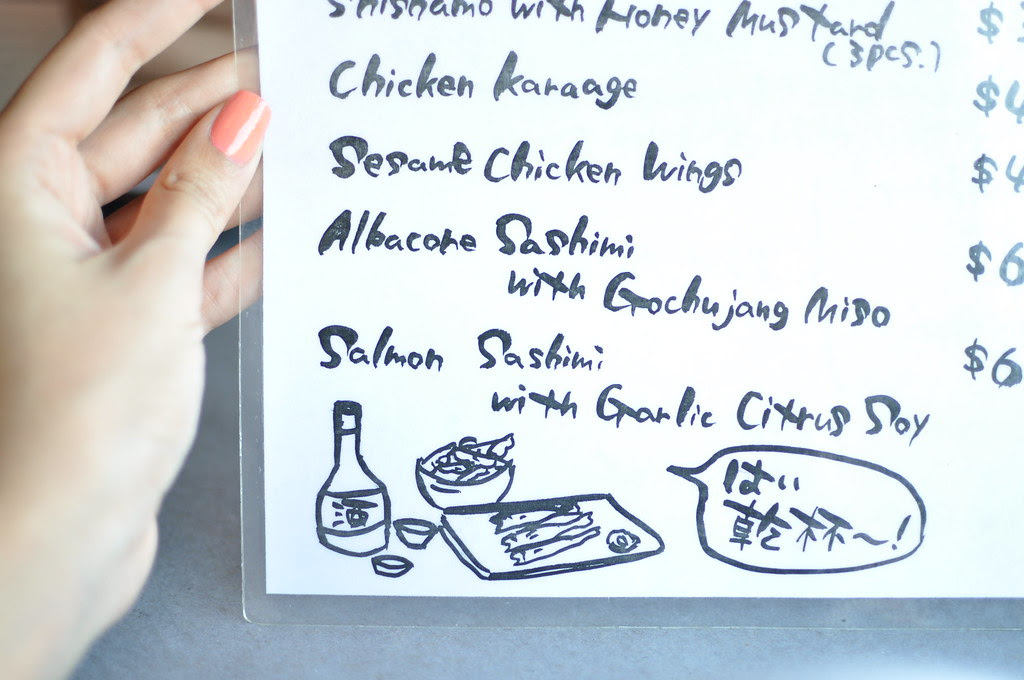 Shishamo with Honey Mustard $
(3pcs.)
Chicken Karaage $4
Sesame Chicken Wings $4
Albacore Sashimi $6
with Gochujang Miso
Salmon Sashimi $6
with Garlic Citrus Soy
はい
乾杯〜!